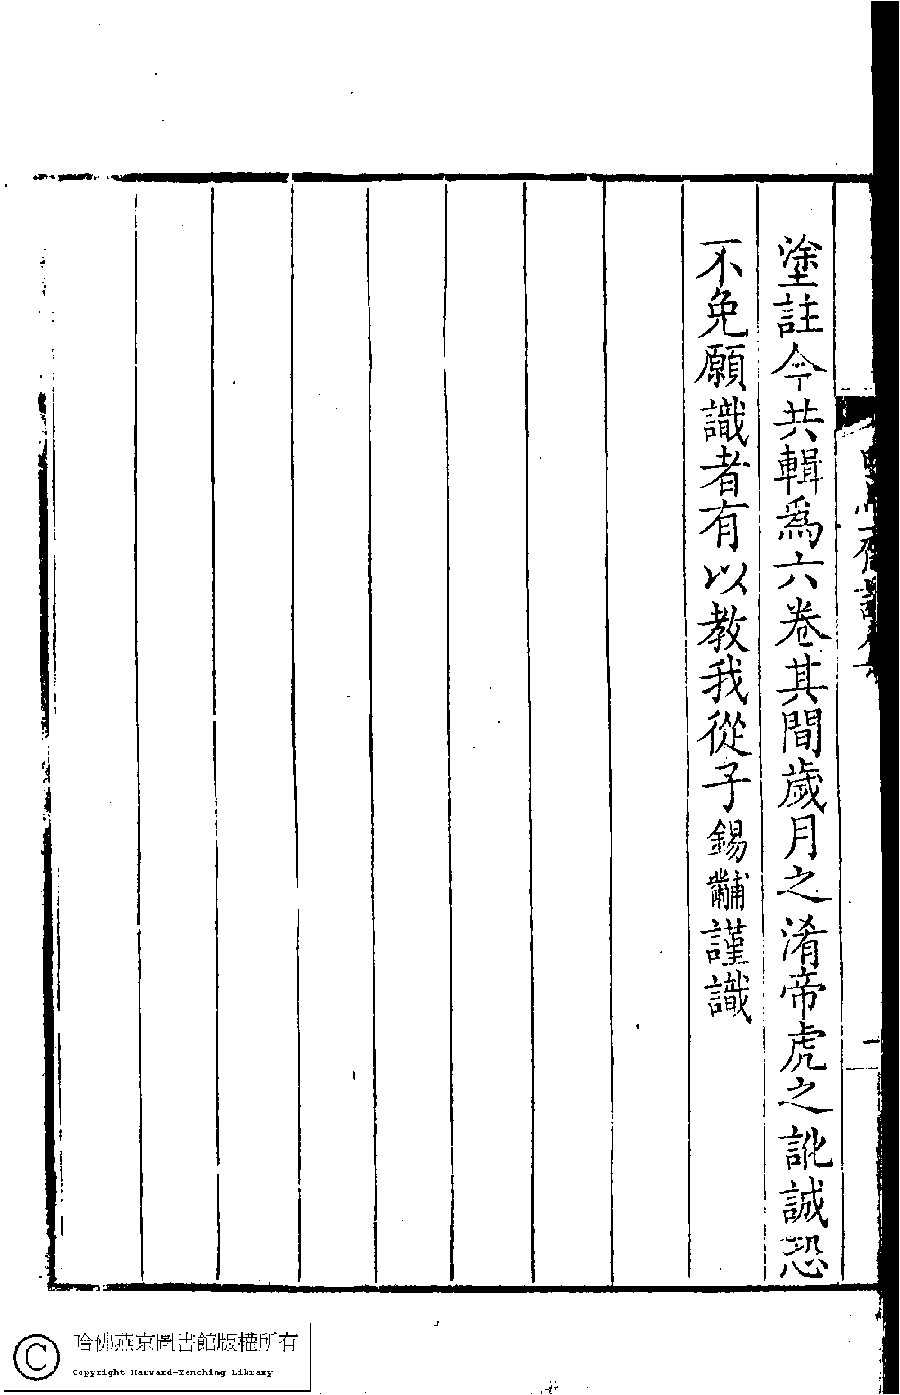 塗註今共輯爲六卷其間歲月之淆帝虎之訛誠恐
不免願識者有以教我從子錫黼謹識
一
哈佛燕京圖書館版權所有
Copyright Harvard-Yenching Library